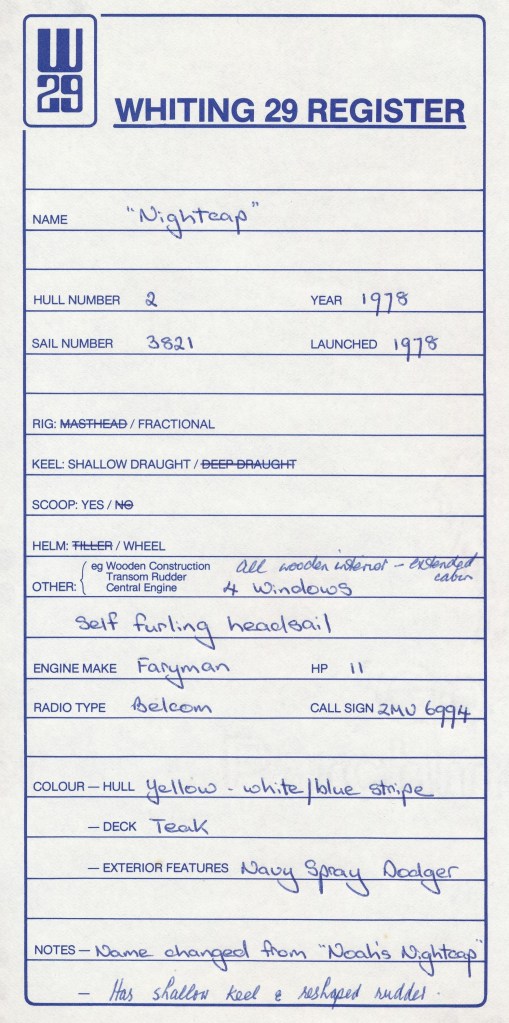 W
29
WHITING 29 REGISTER
NAME "Nightcap"
HULL NUMBER 2 YEAR 1978
SAIL NUMBER 3821 LAUNCHED 1978
RIG: MASTHEAD / FRACTIONAL
KEEL: SHALLOW DRAUGHT / DEEP DRAUGHT
SCOOP: YES / NO
HELM: TILLER / WHEEL
OTHER: { eg Wooden Construction All wooden interior - extended
Transom Rudder cabin
Central Engine 4 Windows
Self furling headsail
ENGINE MAKE Faryman HP 11
RADIO TYPE Belcom CALL SIGN ZMU 6994
COLOUR — HULL Yellow - white/blue stripe
— DECK Teak
— EXTERIOR FEATURES Navy Spray Dodger
NOTES — Name changed from "Noah's Nightcap"
- Has shallow keel & reshaped rudder.